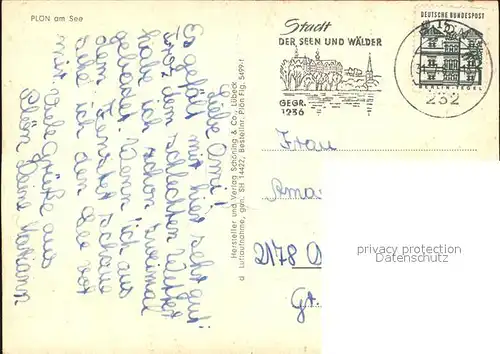 PLÖN am See
Liebe Omi!
Es gefällt mir hier sehr gut
trotz dem schlechten Wetter
habe ich schon zweimal
gebadet. Wenn ich aus
dem Fenster schaue
sehe ich den See vor
mir. Viele Grüße aus
Plön Deine Mariann
Hersteller und Verlag Schöning & Co., Lübeck
d Luftaufnahme, gen. SH 14422, Bestellnr. Plön Flg. 5499-f
Stadt
DER SEEN UND WÄLDER
GEGR.
1236
DEUTSCHE BUNDESPOST
BERLIN-TEGEL
232
Frau
2178
privacy protection